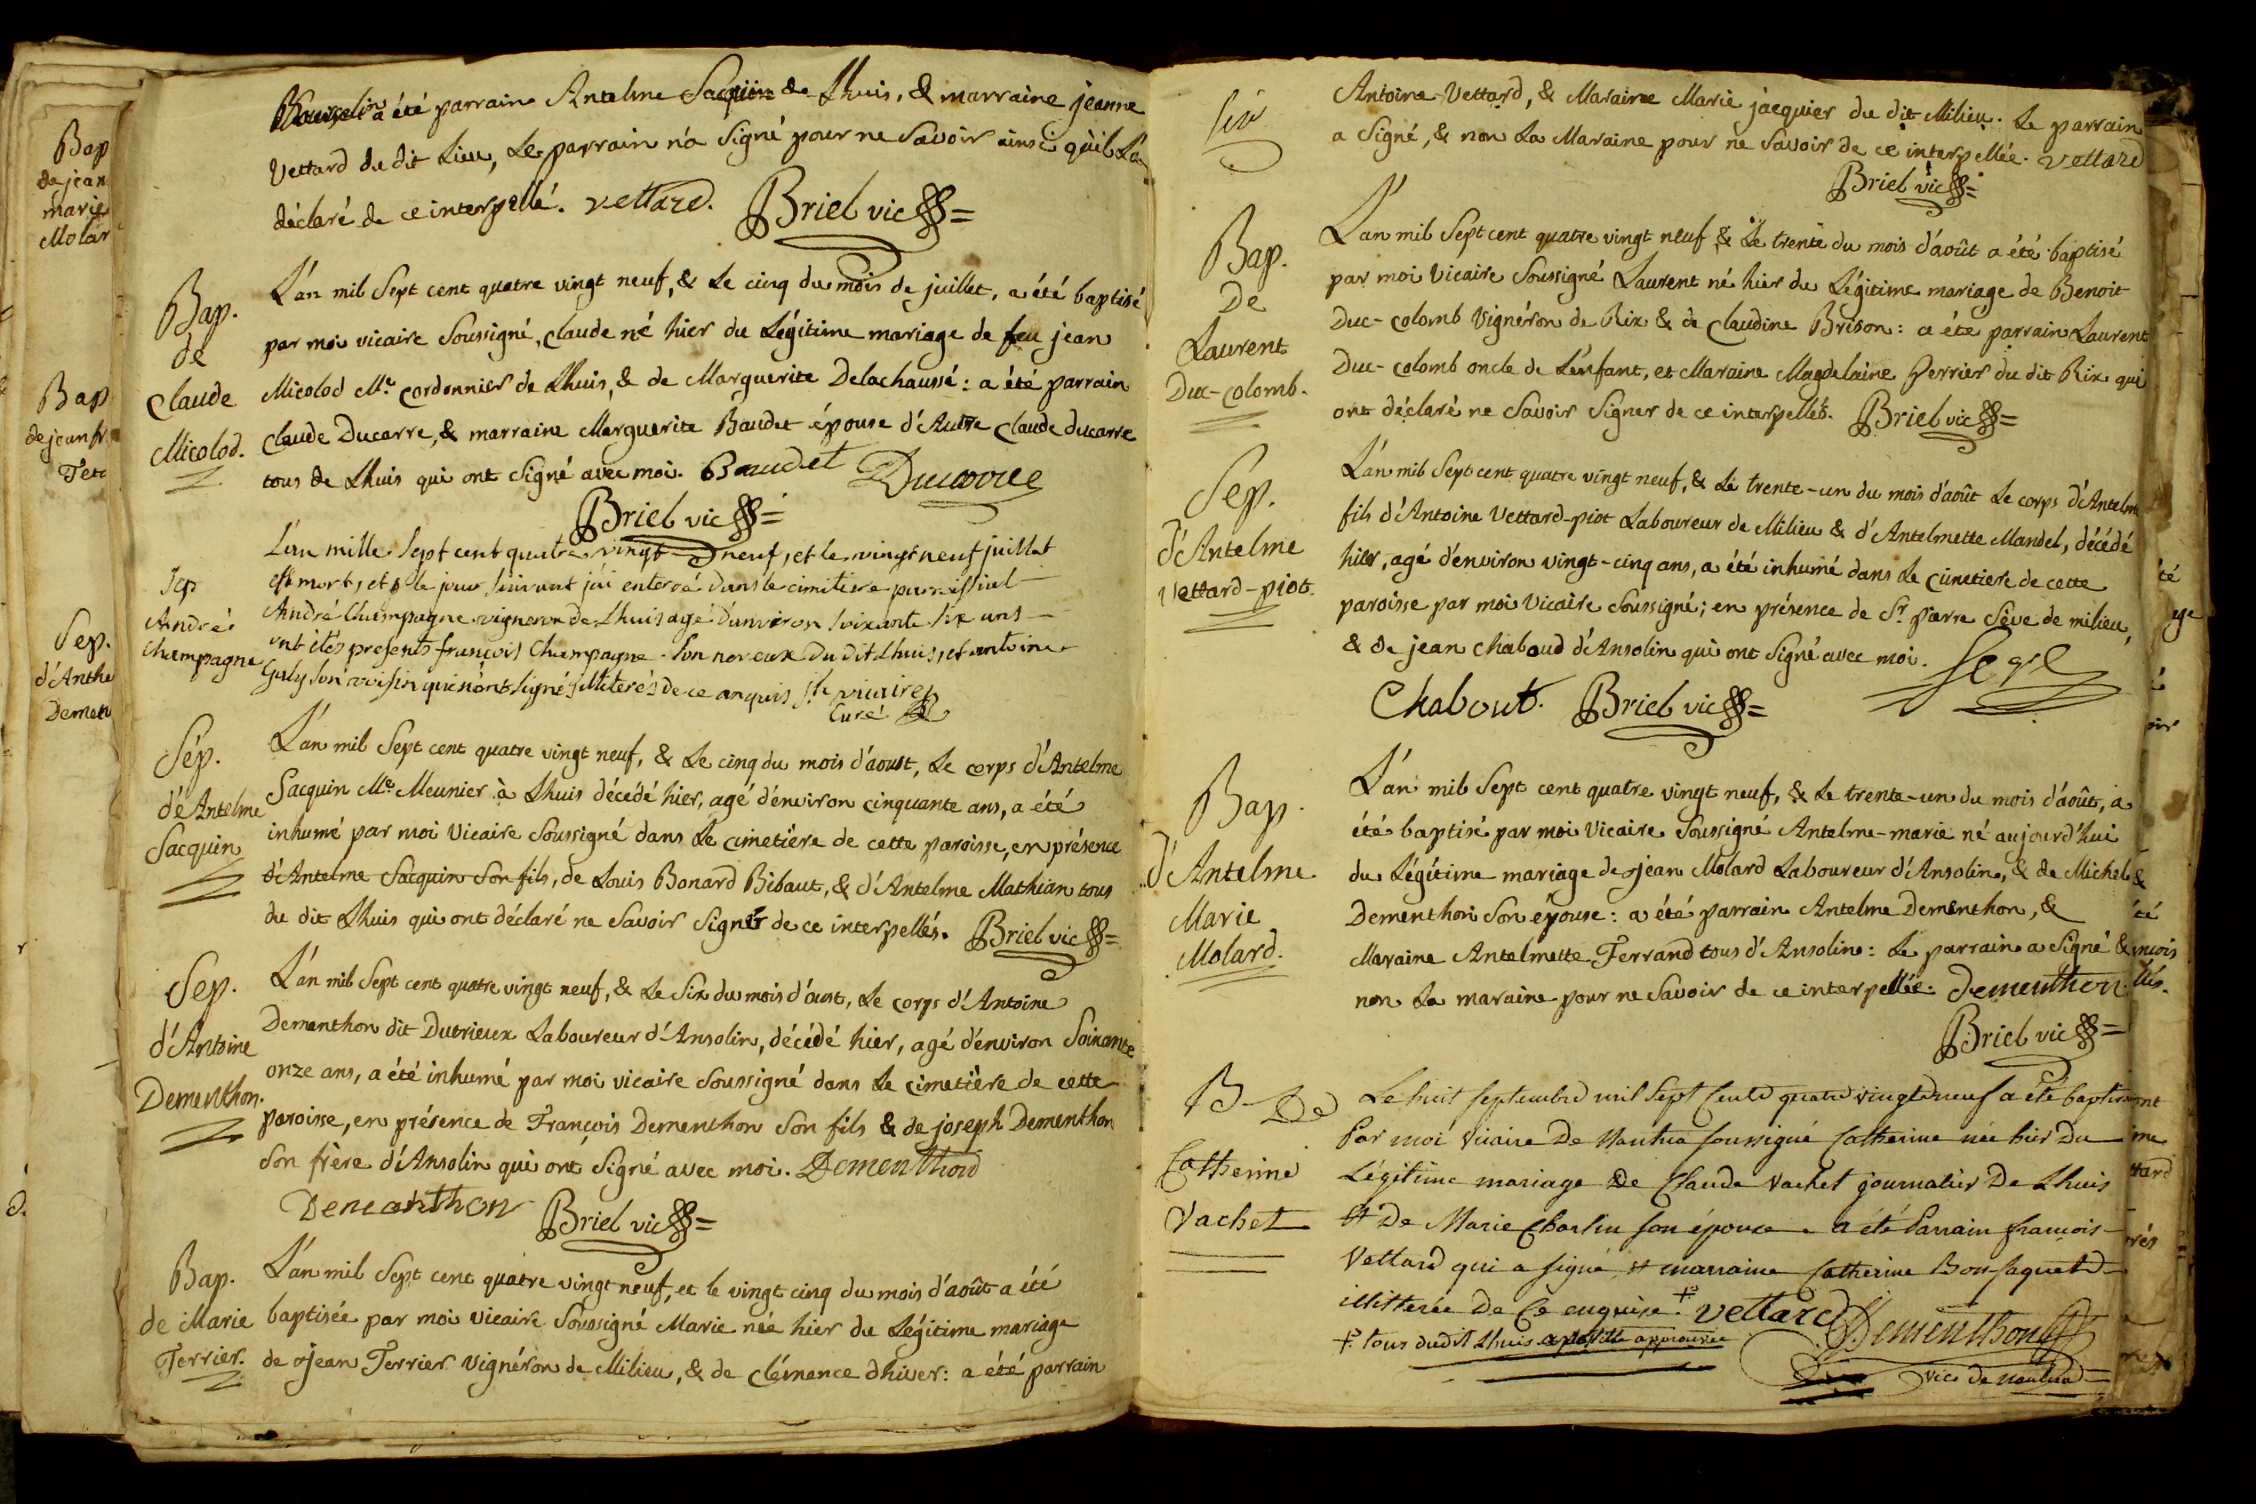 Bap
de jean
marie
Molar
Bap
de jean fr
Sep.
d'Anthe
Demen
Bourgelin a été parrain Antelme Sacquin de Lhuis, & marraine jeanne
Vettard du dit Lieu, Le parrain n'a Signé pour ne Savoir ainsi qu'il L'a
déclaré de ce interpellé. vettard. Briel vic
Bap.
de
Claude
Micolod.
L'an mil Sept cent quatre vingt neuf, & Le cinq du mois de juillet, a été baptisé
par moi vicaire Soussigné, Claude né hier du Légitime mariage de feu jean
Micolod Me. Cordonnier de Lhuis, & de Marguerite Delachaussé : a été parrain
Claude Ducarre, & marraine Marguerite Baudet épouse d'Autre Claude ducarre
tous de Lhuis qui ont Signé avec moi. Baudet Ducarre
Briel vic
Sep
André
Champagne
L'an mille Sept cent quatre vingt neuf, et le vingt neuf juillet
est mort, et le jour suivant j'ai enterré dans le cimitiere paroissial
André Champagne vigneron de Lhuis agé d'environ soixante six ans
ont étés presents françois Champagne son neveux du dit Lhuis, et antoine
Galy son voisin qui n'ont signé illiterés de ce enquis
Curé
Sép.
d'Antelme
Sacquin
L'an mil Sept cent quatre vingt neuf, & Le cinq du mois d'aoust, Le corps d'Antelme
Sacquin Me. Meunier à Lhuis décédé hier, agé d'environ cinquante ans, a été
inhumé par moi Vicaire Soussigné dans Le cimetière de cette paroisse, en présence
d'Antelme Sacquin Son fils, de Louis Bonard Bibaut, & d'Antelme Mathian tous
du dit Lhuis qui ont déclaré ne Savoir Signer de ce interpellés. Briel vic
Sep.
d'Antoine
Dementhon.
L'an mil Sept cent quatre vingt neuf, & Le Six du mois d'aoust, Le corps d'Antoine
Dementhon dit Dutrieux Laboureur d'Ansolin, décédé hier, agé d'environ Soixante
onze ans, a été inhumé par moi vicaire Soussigné dans Le cimetière de cette
paroisse, en présence de François Dementhon Son fils & de joseph Dementhon
Son frère d'Ansolin qui ont Signé avec moi. Dementhond
Demanthon Briel vic
Bap.
de Marie
Ferrier.
L'an mil Sept cent quatre vingt neuf, et le vingt cinq du mois d'août a été
baptisée par moi Vicaire Soussigné Marie née hier du Légitime mariage
de Jean Ferrier Vignéron de Milieu, & de Clémence d'hiver : a été parrain
Six
Antoine Vettard, & Maraine Marie jacquier du dit Milieu. Le parrain
a Signé, & non La Maraine pour ne Savoir de ce interpellée. vettard
Briel vic
Bap.
De
Laurent
Duc-Colomb.
L'an mil Sept cent quatre vingt neuf & Le trente du mois d'août a été baptisé
par moi Vicaire Soussigné Laurent né hier du Légitime mariage de Benoit
Duc-Colomb Vignéron de Rix & de Claudine Brison : a été parrain Laurent
Duc-Colomb oncle de L'enfant, et Maraine Magdelaine Perrier du dit Rix qui
ont déclaré ne Savoir Signer de ce interpellés. Briel vic
Sep.
d'Antelme
Vettard-piot.
L'an mil Sept cent quatre vingt neuf, & Le trente-un du mois d'août Le corps d'Antelme
fils d'Antoine Vettard-piot Laboureur de Milieu & d'Antelmette Mandel, décédé
hier, agé d'environ vingt-cinq ans, a été inhumé dans Le cimetiere de cette
paroisse par moi Vicaire Soussigné ; en présence de Sr. pierre Sève de milieu,
& de jean Chaboud d'Ansolin qui ont Signé avec moi.
Chabout. Briel vic
Bap.
d'Antelme
Marie
Molard.
L'an mil Sept cent quatre vingt neuf, & Le trente-un du mois d'août, a
été baptisé par moi Vicaire Soussigné Antelme-marie né aujourd'hui
du Légitime mariage de jean Molard Laboureur d'Ansolin, & de Michel
Dementhon Son épouse : a été parrain Antelme Dementhon, &
Maraine Antelmette Ferrand tous d'Ansolin : Le parrain a Signé &
non La maraine pour ne Savoir de ce interpellée. Dementhon
Briel vic
B De
Catherine
Vachet
Le huit septembre mil Sept Cents quatre vingt neuf a été baptisée
Par moi Vicaire De Nantua soussigné Catherine née hier Du
Légitime mariage De Claude Vachet journalier De Lhuis
et De Marie Charlin son épouse. a été Parrain françois
Vettard qui a signé et marraine Catherine Bon Saquet
illitterée De Ce enquise. + vettard Dementhon
+ tous dudit Lhuis apostille approuvée
vic. de Nantua